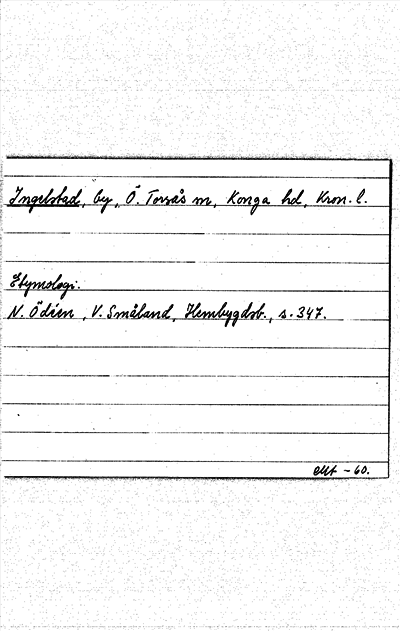 Ingelstad, by, Ö. Torsås sn, Konga hd, Kron. l.
Etymologi.
N. Ödéen, V. Småland, Hembygdsb., s. 347.
-60.